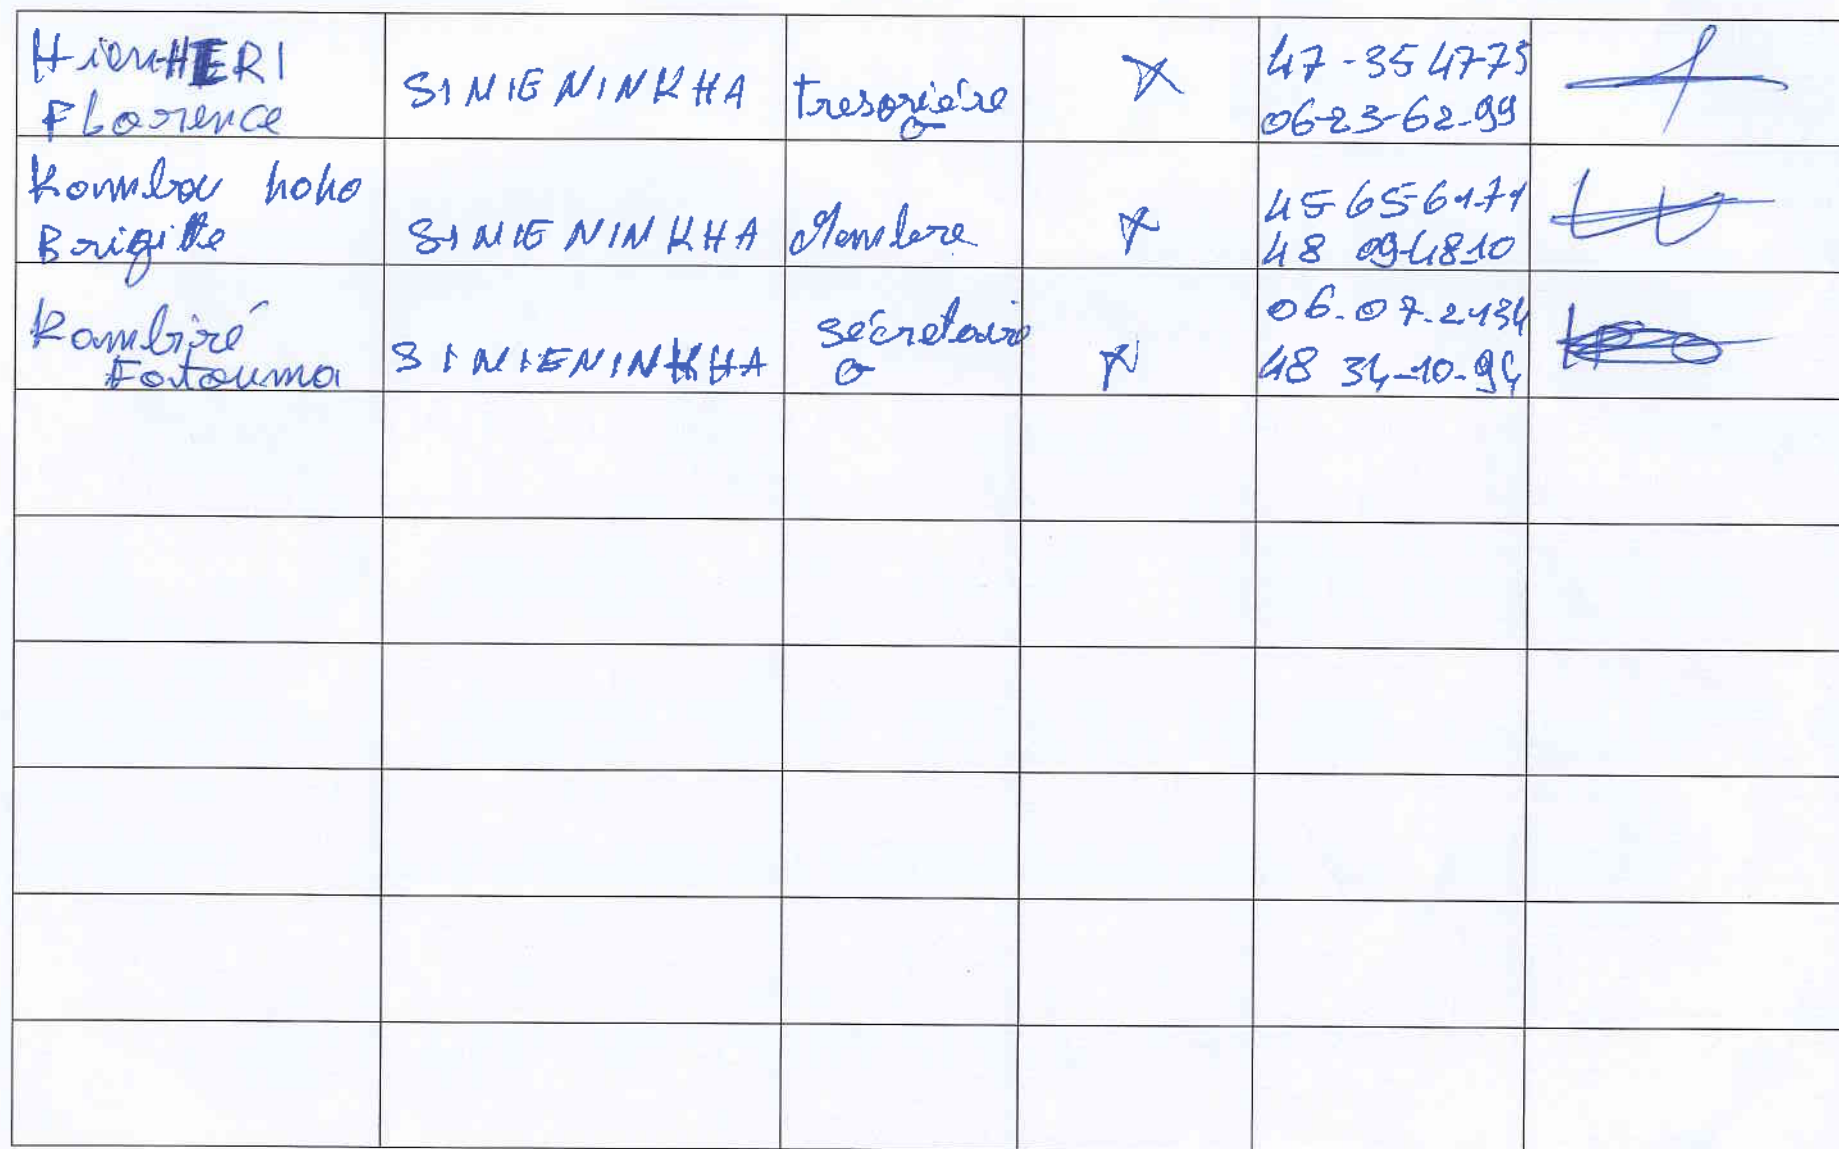 Hien HERI
Florence
SINIENINKHA
tresorière
X
47-35 47 75
06-23-62-99
Komba hoho
Brigitte
SINIENINKHA
Membre
X
45 65 61 71
48 09 48 10
Kambiré
Fatouma
SINIENINKHA
sécretaire
X
06-07-2134
48 34-10-94